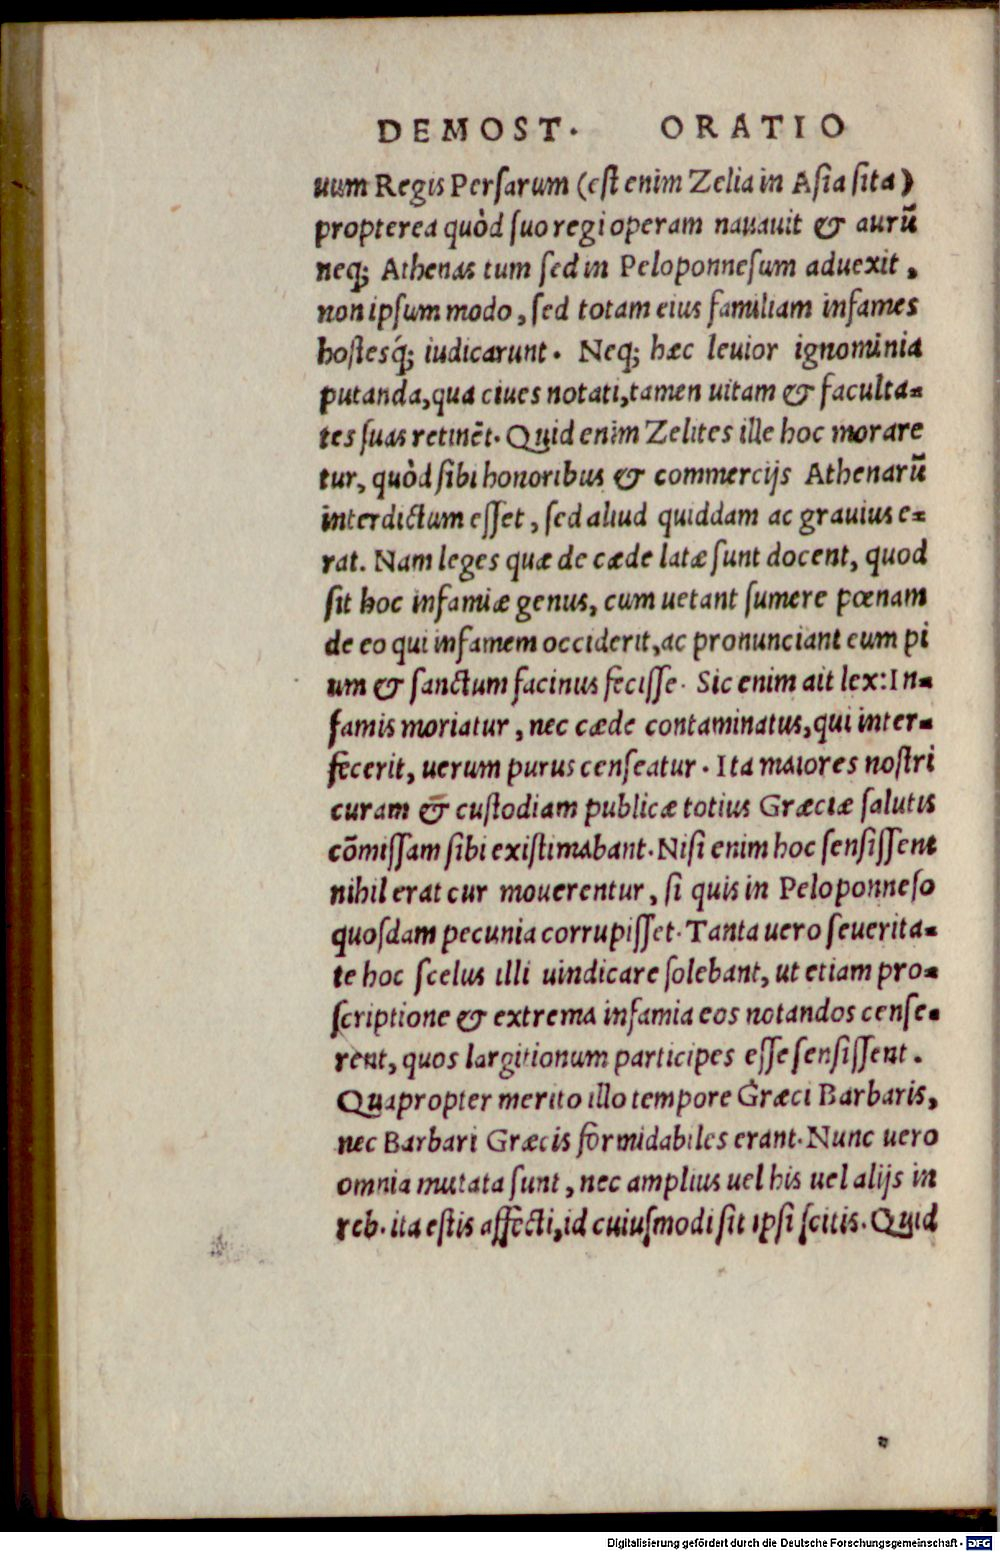 DEMOST. ORATIO
uum Regis Persarum (est enim Zelia in Asia sita)
propterea quòd suo regi operam nauauit & aurũ
neq; Athenas tum sed in Peloponnesum aduexit,
non ipsum modo, sed totam eius familiam infames
hostesq́; iudicarunt. Neq; hæc leuior ignominia
putanda, qua ciues notati, tamen uitam & faculta-
tes suas retinẽt. Quid enim Zelites ille hoc morare
tur, quòd sibi honoribus & commercijs Athenarũ
interdictum esset, sed aliud quiddam ac grauius e-
rat. Nam leges quæ de cæde latæ sunt docent, quod
sit hoc infamiæ genus, cum uetant sumere pœnam
de eo qui infamem occiderit, ac pronunciant eum pi
um & sanctum facinus fecisse. Sic enim ait lex: In-
famis moriatur, nec cæde contaminatus, qui inter-
fecerit, uerum purus censeatur. Ita maiores nostri
curam & custodiam publicæ totius Græciæ salutis
cõmissam sibi existimabant. Nisi enim hoc sensissent
nihil erat cur mouerentur, si quis in Peloponneso
quosdam pecunia corrupisset. Tanta uero seuerita-
te hoc scelus illi uindicare solebant, ut etiam pro-
scriptione & extrema infamia eos notandos cense-
rent, quos largitionum participes esse sensissent.
Quapropter merito illo tempore Græci Barbaris,
nec Barbari Græcis formidabiles erant. Nunc uero
omnia mutata sunt, nec amplius uel his uel alijs in
reb. ita estis affecti, id cuiusmodi sit ipsi scitis. Quid
Digitalisierung gefördert durch die Deutsche Forschungsgemeinschaft - DFG